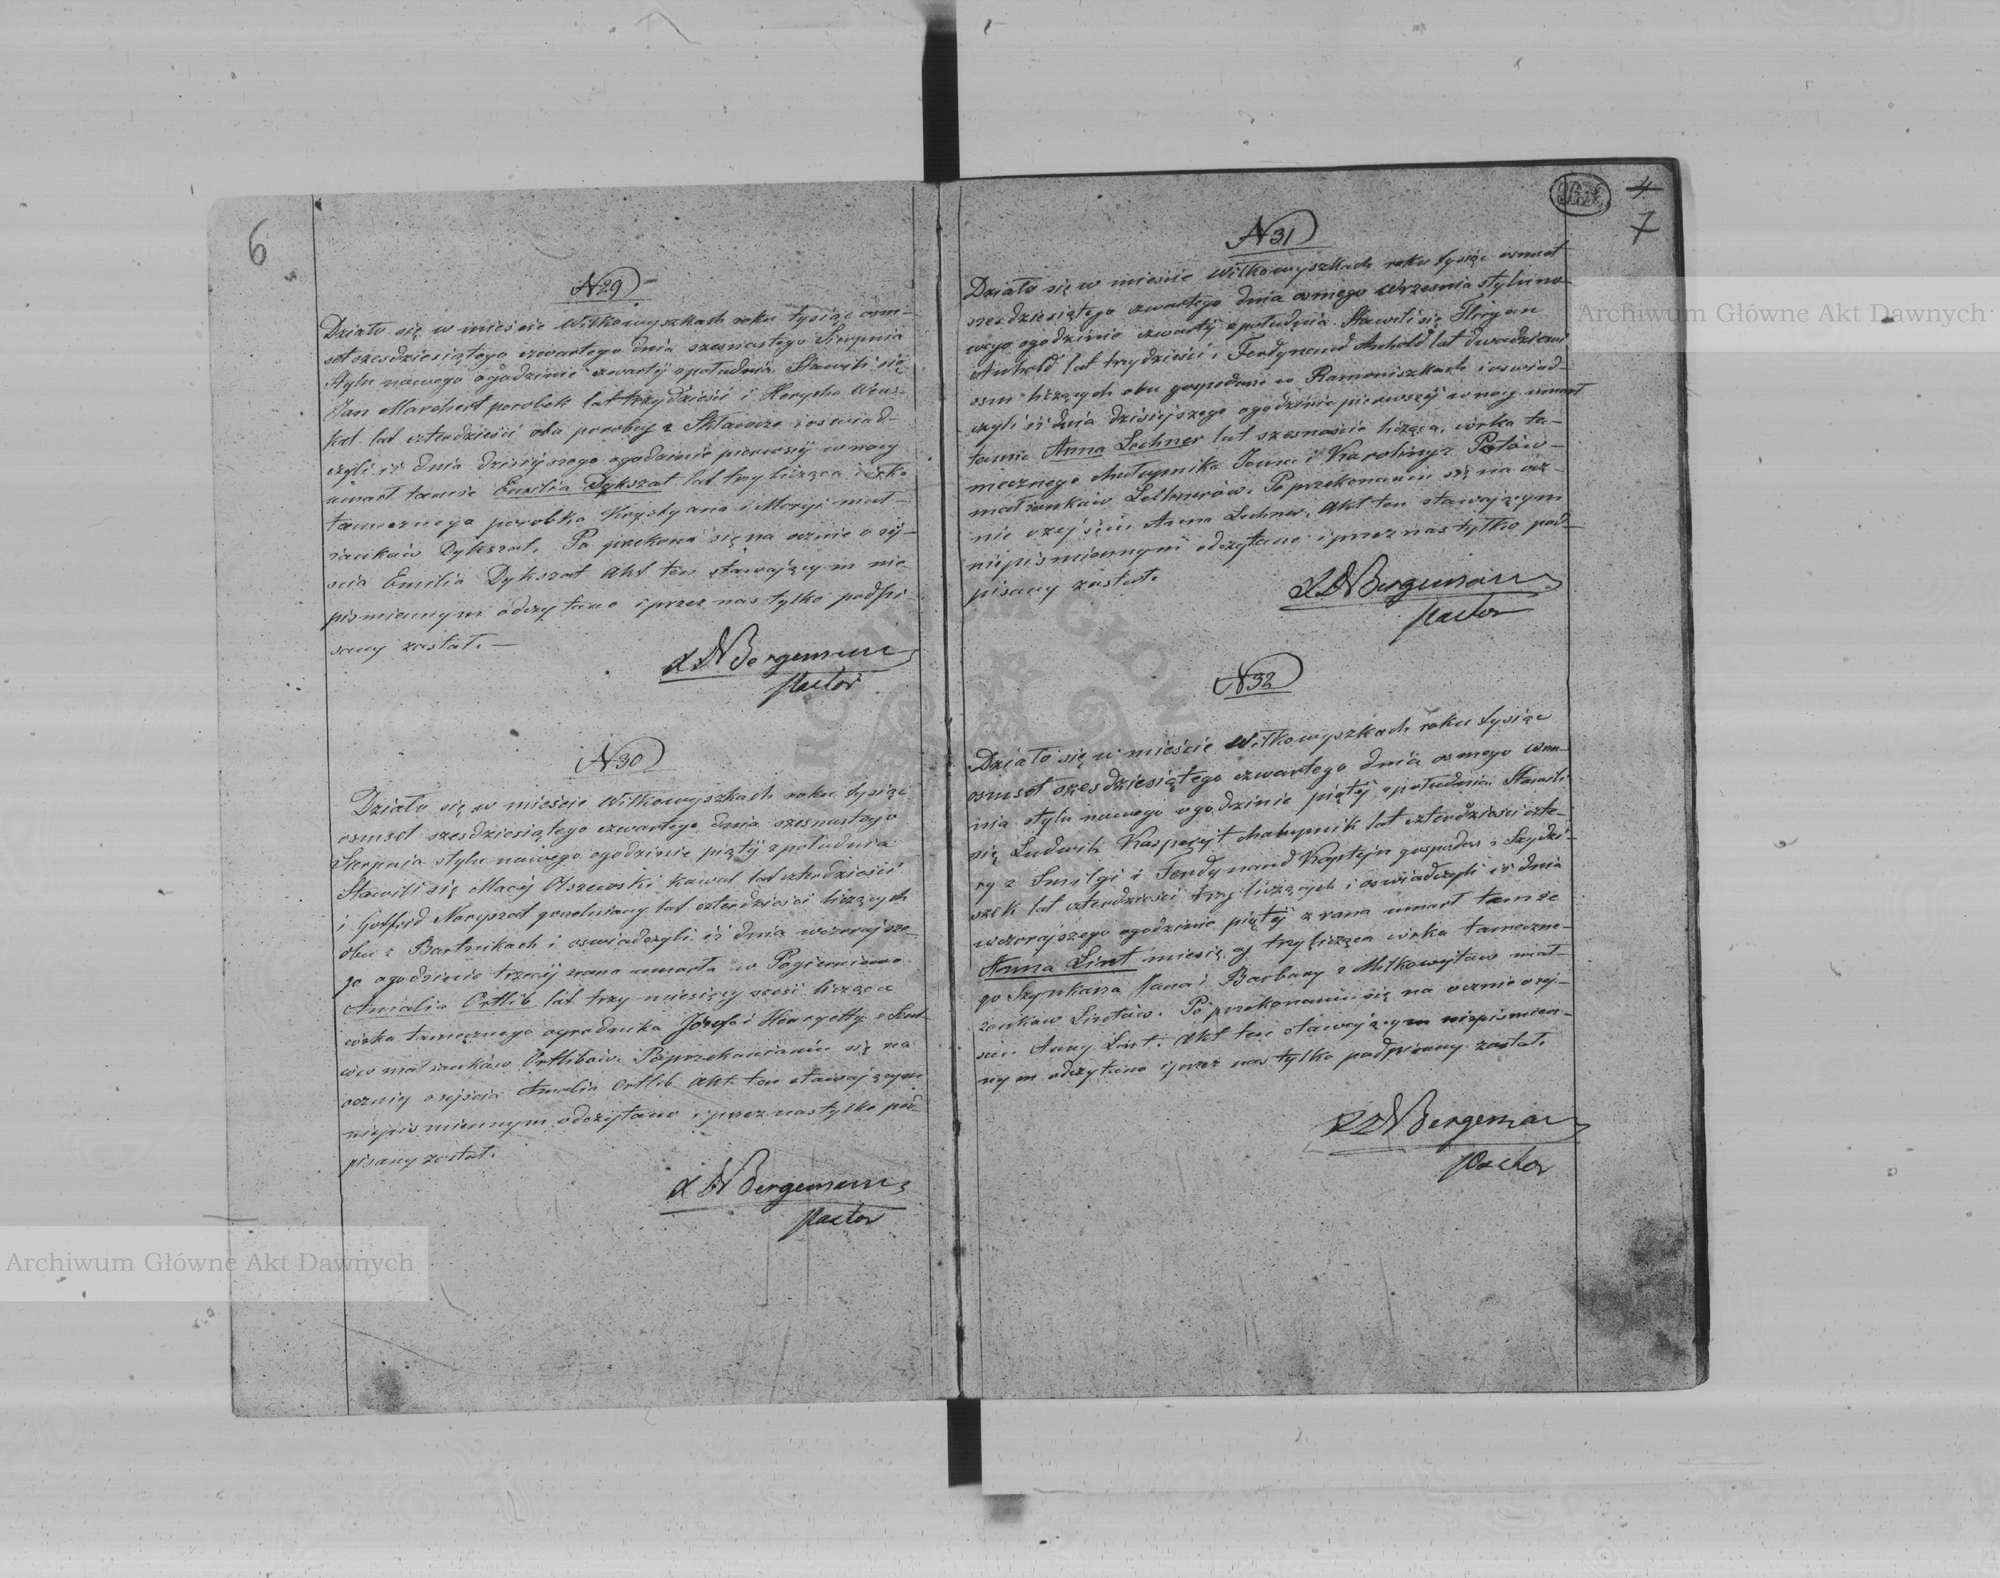 6
N 29
Działo się w mieście Wiłkowyszkach roku tysiąc ośm-
set szesdziesiątego czwartego dnia szesnastego Sierpnia
stylu nowego ogodzinie czwarty zpołudnia. Stawili się
Jan Marchert parobek lat trzydzieści i Heryche
lat czterdzieści oba parobcy z i oswiad-
czyli iż dnia dzisiejszego ogodzinie pierwszej w nocy
umarł tamie Emilia Dykszat lat trzy licząca córka
tamecznego parobka Krystyana i Maryi mał-
żanków Dykszat. Po przekona się na ocznie o zej-
scia Emilia Dykszat Akt ten stawającym nie
pismiennym odczytano i przez nas tylko podpi-
sany został. —
Bergemann
Pastor
N 30
Działo się w mieście Wiłkowyszkach roku tysiąc
osmset szesdziesiątego czwartego dnia szesnastego
Sierpnia stylu nowego ogodzinie piąty zpołudnia
Stawili się Maciej Olszewski kowal lat czterdzieści
i Gotfrid Noryszat lat czterdzieści liczących
obu z Bartnikach i oswiadczyli iż dnia wczorajsze-
go ogodzinie trzeciej zrana umarła w
Amialia Ortlib lat trzy miesięcy sześć licząca
córka tamecznego ogrodnika Józefa i Henryetty z
małżanków Ortlibów. Poprzekonaniu się na
oczniy o zejścia Amalia Ortlib Akt ten stawającym
niepismiennym odczytano i przez nas tylko pod-
pisany został.
Bergemann
Pastor
4
7
N 31
Działo się w mieście Wiłkowyszkach roku tysiąc osmset
szesdziesiątego czwartego dnia osmego Września stylu no-
wego ogodzinie czwarty zpołudnia. Stawili się Floryan
Anhold lat trzydzieści i Ferdynand Anhold lat dwadzieścia
osm liczących obu gospodarze w Ramoniszkach i oswiad-
czyli iż dnia dzisiejszego ogodzinie pierwszej w nocy umarł
tamie Anna Lechner lat szesnaście licząca, córka ta-
mecznego chałupnika Jana i Karoliny z
małżanków Lechnerów. Po przekonaniu się na ocz-
nie ozejściu Anna Lechner, Akt ten stawającym
niepismiennym odczytano i przez nas tylko pod-
pisany został.
Bergemann
Pastor
N 32
Działo się w mieście Wiłkowyszkach roku tysiąc
osmset szesdziesiątego czwartego dnia osmego Wrze-
nia stylu nowego ogodzinie piątej zpołudnia. Stawili
się Ludwik Kasperejt chałupnik lat czterdzieści czte-
ry z Smilgi i Ferdynand Kaptejn gospodarz z Szydzi-
szek lat czterdzieści trzy liczących i oswiadczyli iż dnia
wczorajszego ogodzinie piątej zrana umarł tamże
Anna Lint miesięcy trzy licząca córka tameczne-
go Szynkarza Jana i Barbary z mał-
żankaw Lintów. Po przekonaniu się na ocznie ozej-
scie Anny Lint. Akt ten stawającym niepismien-
nym odczytano i przez nas tylko podpisany został.
Bergeman
Pastor
Archiwum Główne Akt Dawnych
Archiwum Główne Akt Dawnych